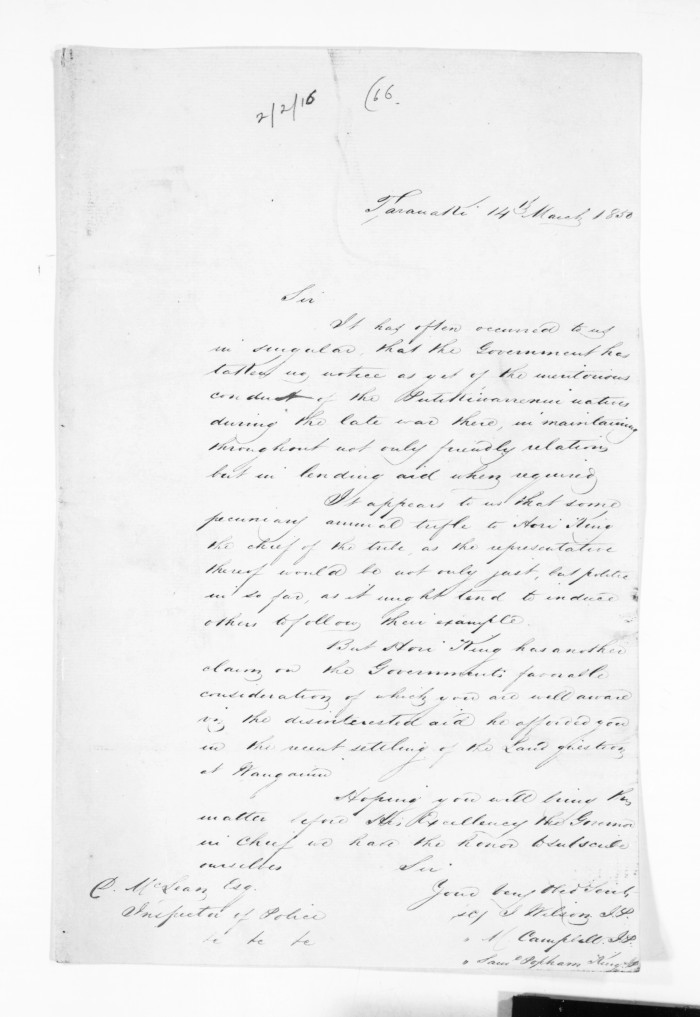 2/2/16
(66.
Taranaki 14th March 1850
Sir
It has often occurred to us
in singular, that the Government has
taken no notice as yet of the meritorious
conduct of the natives
during the late war there, in maintaining
throughout not only friendly relations
but in lending aid when required
It appears to us that some
pecuniary annual trifle to Hori King
the chief of the tribe, as the representative
thereof would be not only just, but politic
in so far, as it might tend to induce
others to follow their example.
But Hori King has another
claim on the Governments favorable
consideration of which you are well aware
viz the disinterested aid he afforded you
in the recent settling of the Land question
at Wanganui
Hoping you will bring this
matter before His Excellency the Governor
in Chief we have the honor to subscribe
ourselves Sir
Your very Obed Servts
sd/ J Wilson J.P.
" M Campbell J.P.
" Saml Popham King J.P.
D. McLean Esq.
Inspector of Police
&c &c &c